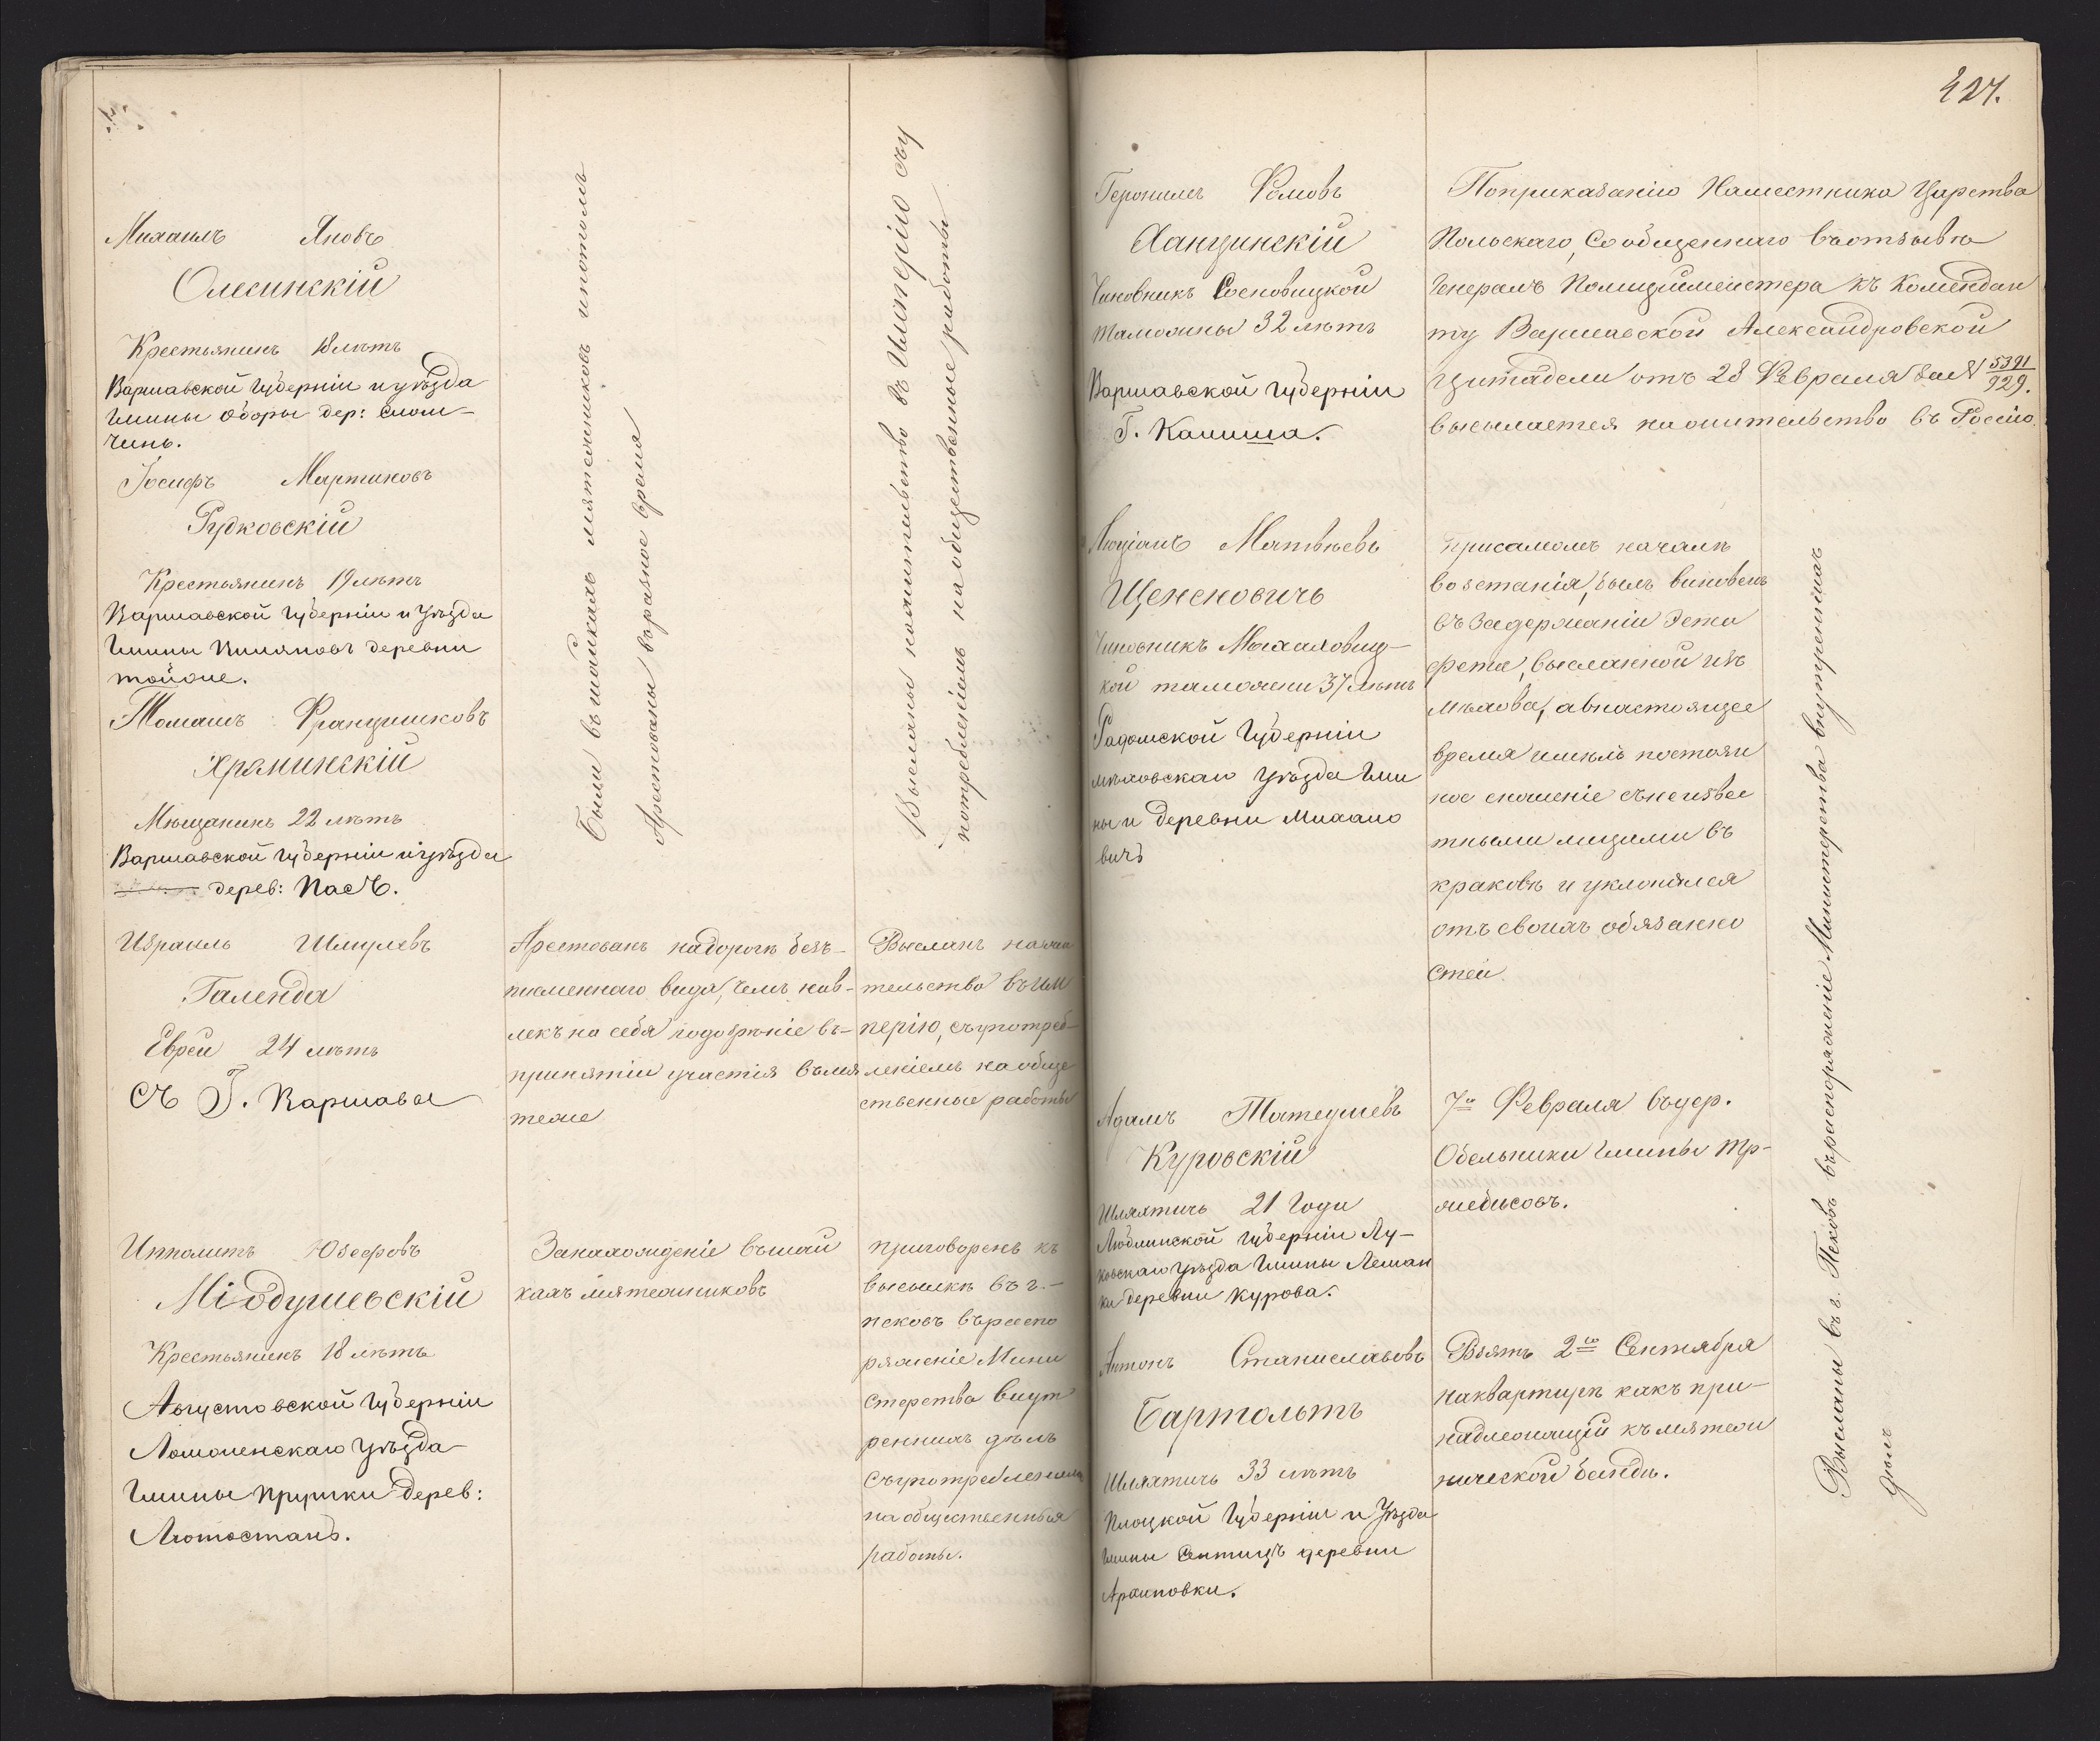 427.
Михаилъ Яновъ
Олесинскій
Крестьянинъ 18 лѣтъ
Варшавской Губерніи и уѣзда
Гмины Оборы дер: Слом-
чинь.
Іосифъ Мартиновъ
Рудковскій
Крестьянинъ 19 лѣтъ
Варшавской Губерніи и Уѣзда
Гмины деревни
Томашъ Францишковъ
Хрянинскій
Мѣщанинъ 22 лѣтъ
Варшавской Губерніи и Уѣзда
дерев: Пасъ.
Были въ шайкахъ мятежниковъ и потомъ
Арестованы въ разное время
Высланы на жительство въ Имперію съ у
потребленіемъ на общественные работы
Израиль Шмулевъ
Галенда
Еврей 24 лѣтъ
съ Г. Варшавы
Арестованъ на дорогѣ безъ-
писменнаго вида, чемъ нав-
лекъ на себя подозрѣніе въ-
принятіи участія въ мя
теже
Высланъ на жи
тельство въ Им
перію, съ употреб-
леніемъ на обще
ственные работы
Ипполитъ Юзефовъ
Міодушевскій
Крестьянинъ 18 лѣтъ
Августовской Губерніи
Ломженскаго Уѣзда
Гмины Прушки дерев:
Лютостань.
За нахожденіе въ шай
кахъ мятежниковъ
приговоренъ къ
высылкѣ въ г.-
Псковъ въ распо
ряженіе Мини
стерства Внут
реннихъ дѣлъ
съ употребленіемъ
на общественныя
работы.
Геронимъ Фомовъ
Ханцинскій
Чиновникъ Сосновицкой
таможны 32 лѣтъ
Варшавской Губерніи
Г. Калиша.
По приказанію Наместника Царства
Польскаго, Сообщеннаго въ отзывѣ
Генералъ Полиціймейстера къ Комендан
ту Варшавской Александровской
Цитадели отъ 28 Февраля за № 5391/929.
высылается на жительство въ Россію.
Люціанъ Матвѣевъ
Щенсновичъ
Чиновникъ Михаловиц-
кой таможни 37 лѣтъ
Радомской Губерніи
Мѣховскаго Уѣзда Гми
ны и деревни Михало
вичъ
при самомъ началѣ
возстанія, былъ виновенъ
въ задержаніи Эста
фета, высланной изъ
Мѣхова, а в настоящее
время имѣлъ постоян
ное сношеніе съ неизвес
тными лицами въ
Краковѣ и уклонялся
отъ своихъ обязанно
стей
Адамъ Татеушевъ
Куровскій
Шляхтичъ 21 Года
Люблинской Губерніи Лу-
ковскаго Уѣзда Гмины Леман
ки деревни Курова.
7го Февраля въ дер.
Обельники гмины Тр-
жебисовъ.
Антонъ Станиславовъ
Бартольтъ
Шляхтичъ 33 лѣтъ
Плоцкой Губерніи и Уѣзда
Гмины деревни
Взятъ 2го Сентября
на квартирѣ какъ при-
надлежащій къ мятеж
нической банды.
Высланы въ г. Псковъ въ распоряженіе Министерства внутреннихъ
дѣлъ